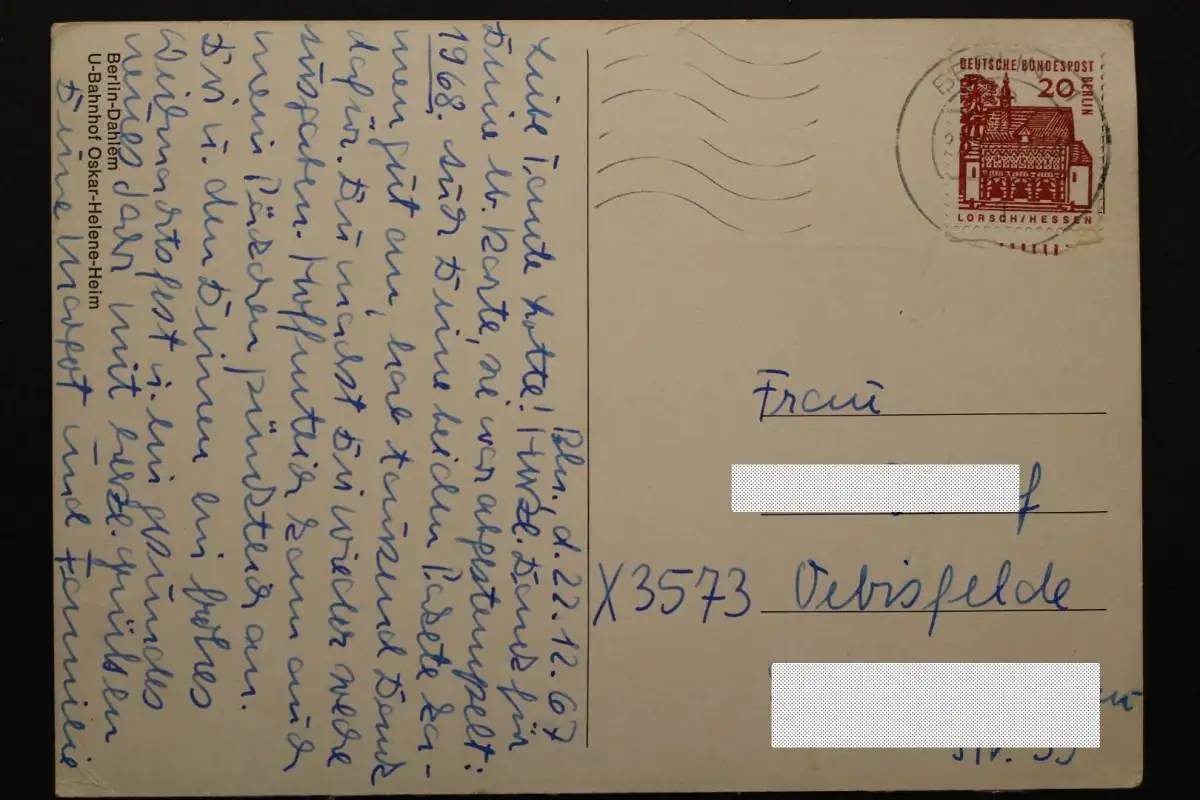 Bln., d. 22.12.67
Liebe Tante Lotte! Herzl. Dank für
Deine lb. Karte, sie war abgestempelt:
1968. Auch Deine beiden Pakete ka-
men gut an, hab tausend Dank
dafür. Du machst Dir wieder
Ausgaben. Hoffentlich kam auch
mein Päckchen pünktlich an.
Dir u. den Deinen ein frohes
Weihnachtsfest u. ein gesundes
neues Jahr mit herzl. Grüßen
Deine Margot und Familie
Berlin-Dahlem
U-Bahnhof Oskar-Helene-Heim
DEUTSCHE BUNDESPOST
BERLIN
20
LORSCH/HESSEN
Frau
f
X3573 Oebisfelde
Str. 33